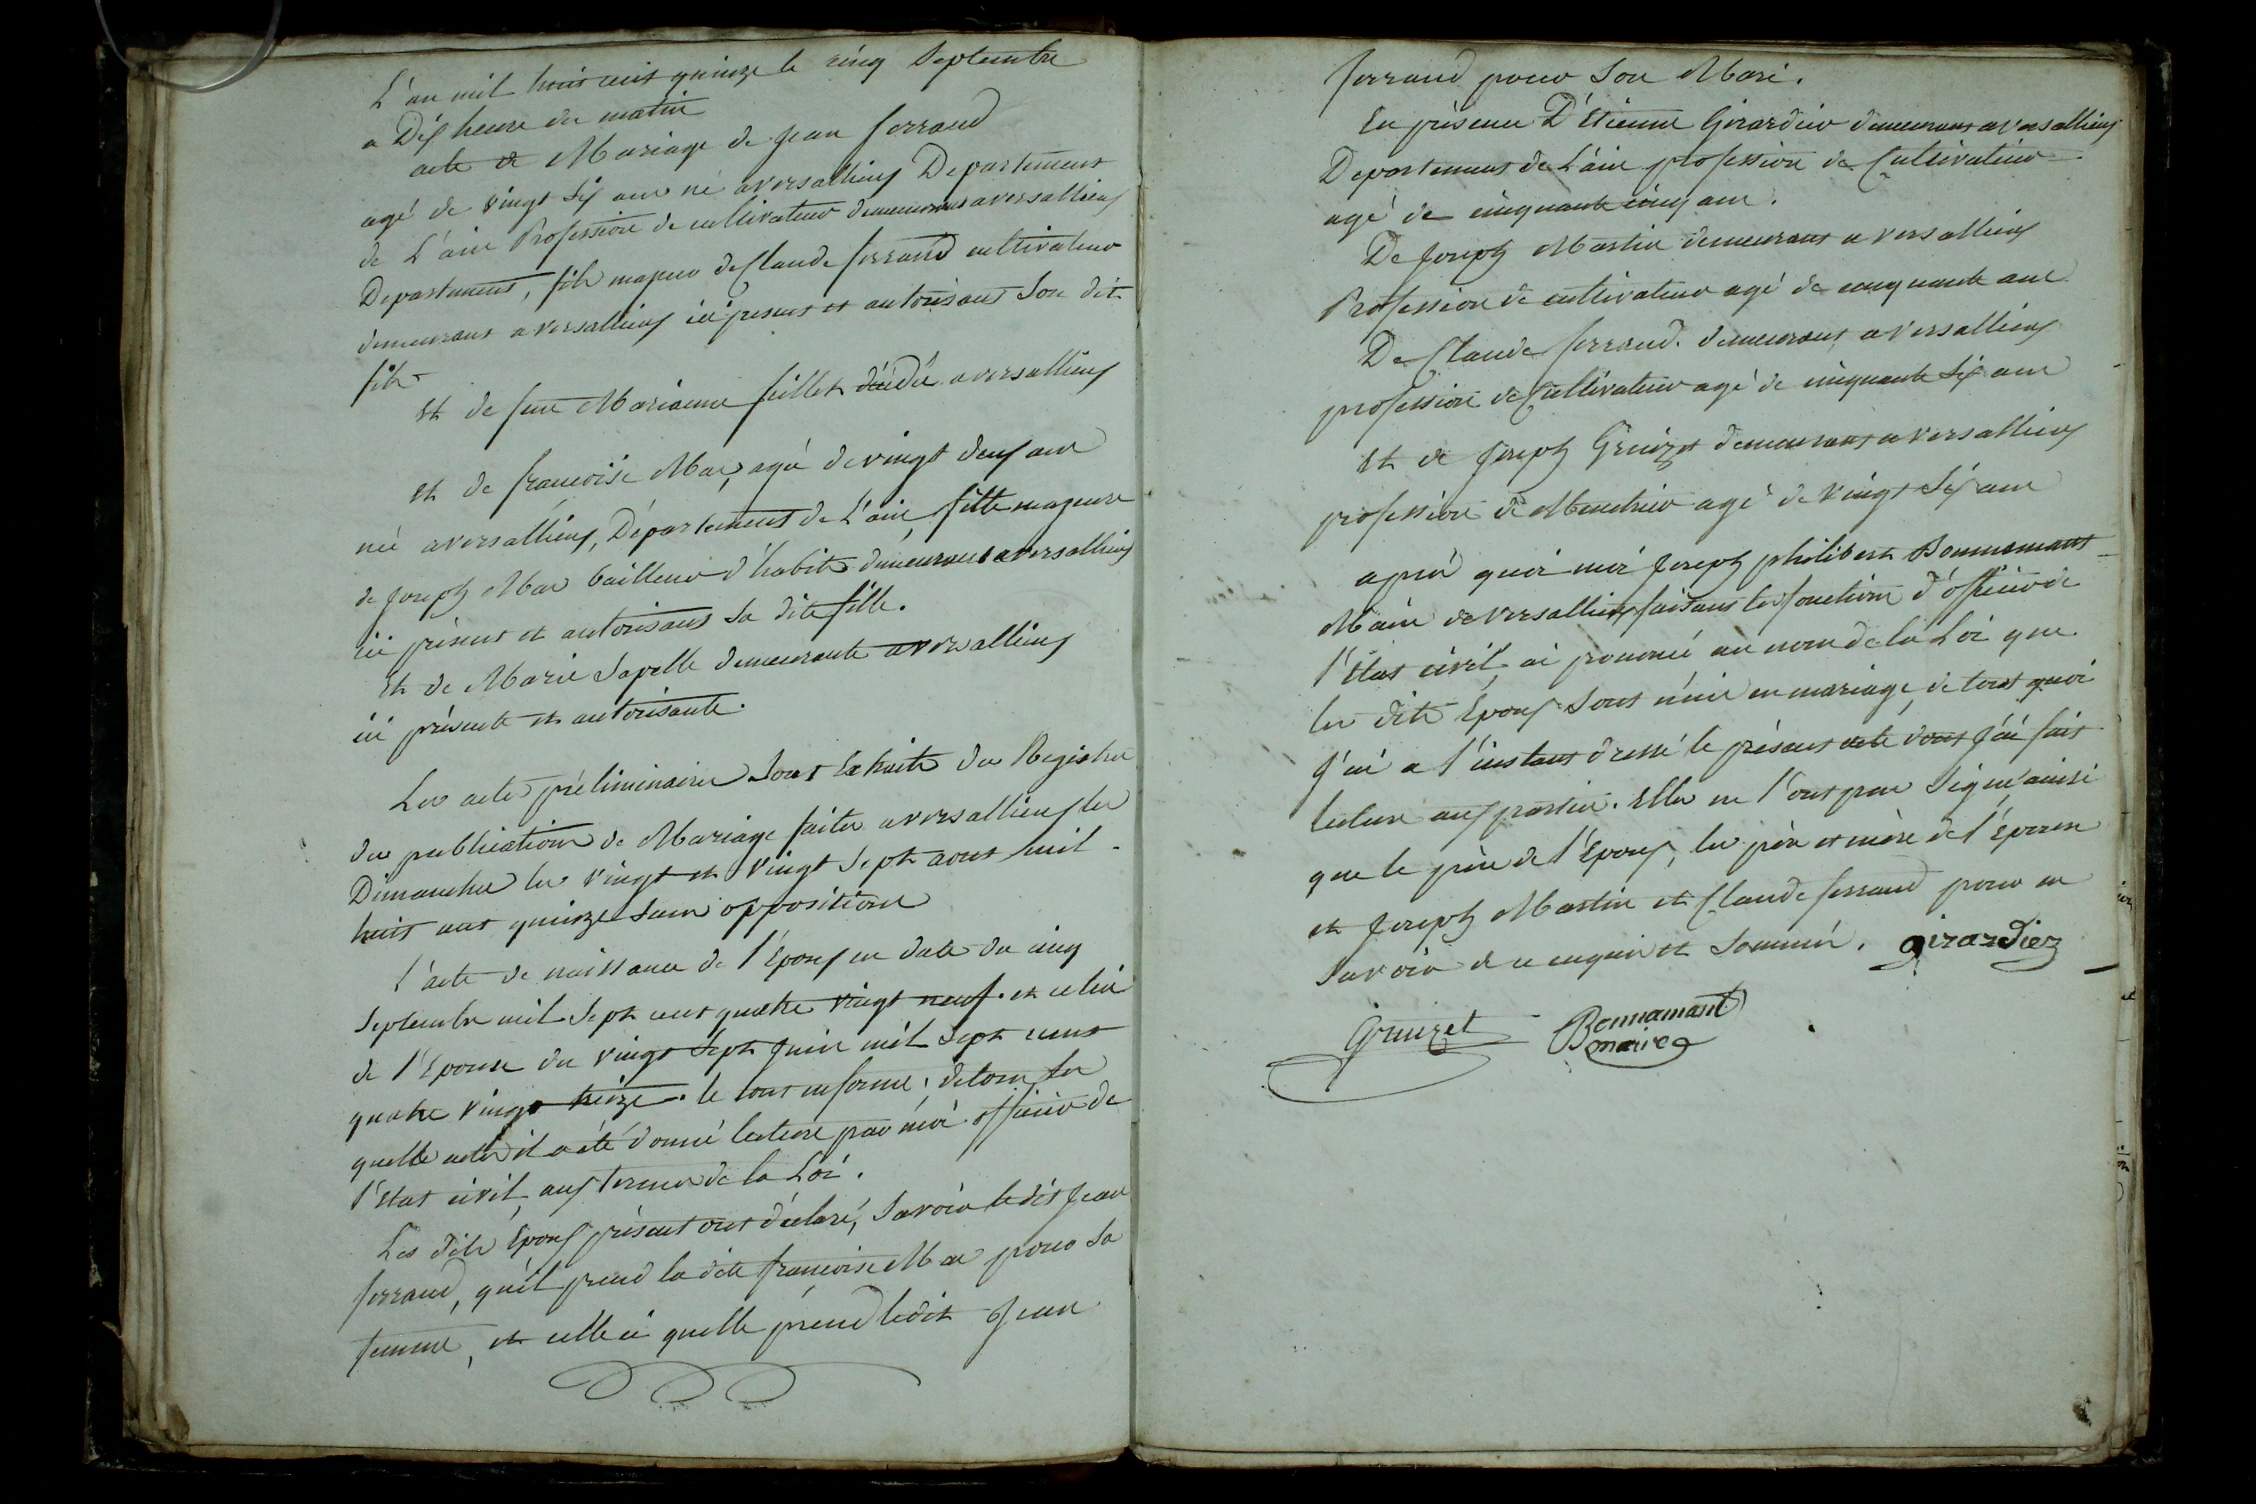 L'an mil huit cent quinze le cinq Septembre
a Dix heure du matin
acte de Mariage de Jean ferrand
agé de vingt six ans né a versallieux Departement
de L'ain Profession de cultivateur demeurant a versallieux
Departement, fils majeur de Claude ferrand cultivateur
demeurant a versallieux ici present et autorisant Son dit
fils
Et de feue Marianne feillet décédée a versallieux
Et de francoise Mas, agée de vingt deux ans
née a versallieux, Département de L'ain, fille majeure
de Joseph Mas tailleur d'habits demeurant a versallieux
ici présent et autorisant Sa dite fille.
Et de Marie Sapelle demeurante a versallieux
ici présente et autorisante.
Les actes préliminaires Sont Extraits des Registres
des publications de Mariage faites a versallieux les
Dimanches les vingt et vingt Sept aout mil
huit cent quinze Sans opposition
L'acte de naissance de l'Epoux en date du cinq
Septembre mil Sept cent quatre vingt neuf. et celui
de l'Epouse du vingt Sept Juin mil Sept cent
quatre vingt treize. le tout en forme; de tous les
quelle actes il a été donné lecture par moi officier de
l'Etat civil, aux termes de la Loi.
Les dits Epoux présent ont déclaré, Savoir le dit Jean
ferrand, qu'il prend la dite francoise Mas pour Sa
femme, et celle ci quelle prend ledit Jean
ferrand pour Son Mari.
En présence D'Etienne Girardier demeurant a versallieux
Departement de L'ain profession de Cultivateur
agé de cinquante cinq ans.
De Joseph Martin demeurant a versallieux
Profession de cultivateur agé de cinquante ans
De Claude ferrand. demeurant a versallieux
profession de Cultivateur agé de cinquante Six ans
Et de Joseph Gruizet demeurant a versallieux
profession de Menuhier agé de vingt Six ans
après quoi moi Joseph philibert Bonnamant
Maire de versallieux faisant les fonctions d'officier de
l'Etat civil, ai prononcé au nom de la Loi que
les dits Epoux Sont unis en mariage, de tout quoi
J'ai a l'instant dressé le présent acte dont J'ai fait
lecture aux parties. Elles ne l'ont pas Signé ainsi
que le père de l'Epoux, les père et mère de l'épouse
et Joseph Martin et Claude ferrand pour ne
Savoir de ce enquis et Sommés. girardier
Gruizet Bonnamant
maire